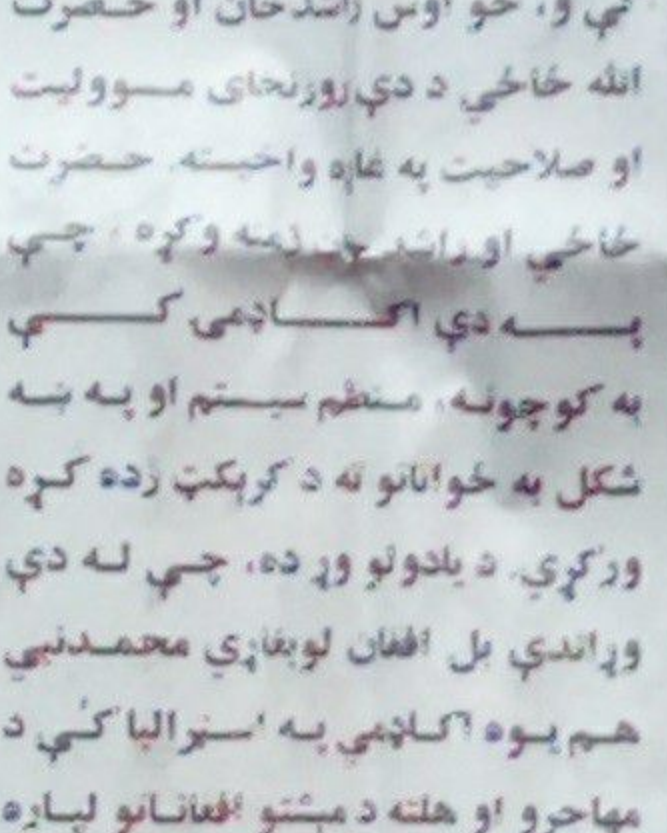 ئې و، خو اوس راشدخان او حضرت
الله ځاځي د دې روزنځای مسوولیت
او صلاحیت په غاړه واخیسته. حضرت
ځاځي او راشد ژمنه وکړه، چې
په دې اکاډمۍ کې
به کوچونه، منظم سیستم او په ښه
شکل به ځوانانو ته د کرېکټ زده کړه
ورکړي. د یادونو وړ ده، چې له دې
وړاندې بل افغان لوبغاړي محمدنبي
هم یوه اکاډمي په استرالیا کې د
مهاجرو او هلته د مېشتو افغانانو لپاره